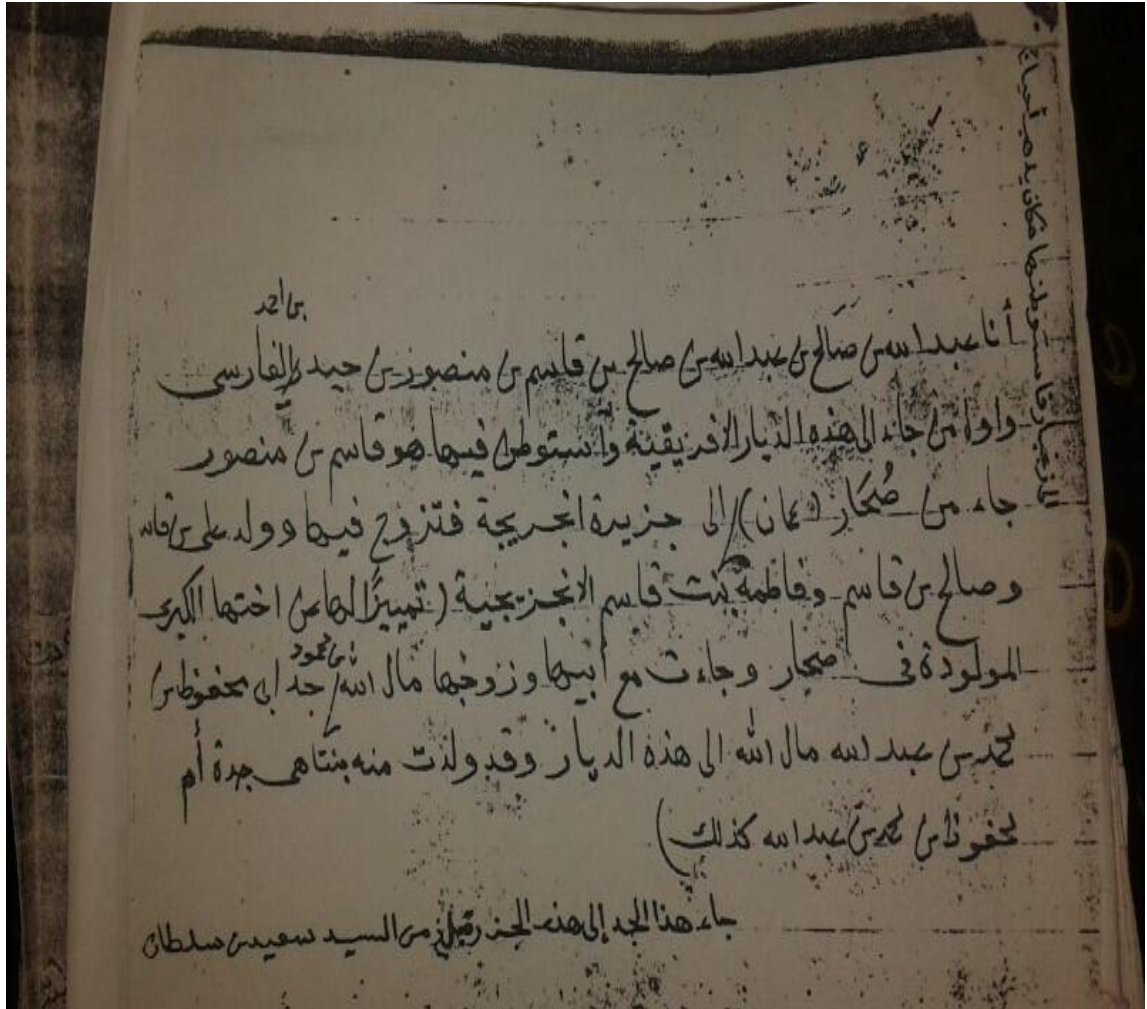 بن احمد
أنا عبد الله بن صالح بن عبد الله بن صالح بن قاسم بن منصور بن حيدر الفارسي
واول من جاء الى هذه الديار الافريقية واستوطن فيها هو قاسم بن منصور
جاء من صُحَار (عمان) إلى جزيرة انجزيجة فتزوج فيها وولد علي بن قاسم
وصالح بن قاسم وفاطمة بنت قاسم الانجزيجية (تمييزًا لها من اختها الكبرى
المولودة فى صحار وجاءت مع أبيها وزوجها مال الله بن محمود جد ابى محفوظ بن
محمد بن عبد الله مال الله الى هذه الديار وقد ولدت منه بنتا هى جدة أم
محفوظ بن محمد بن عبد الله كذلك)
جاء هذا الجد إلى هذه الجزر قبل زمن السيد سعيد بن سلطان
لزنجبار فاستوطنها فكان يذهب احيانا